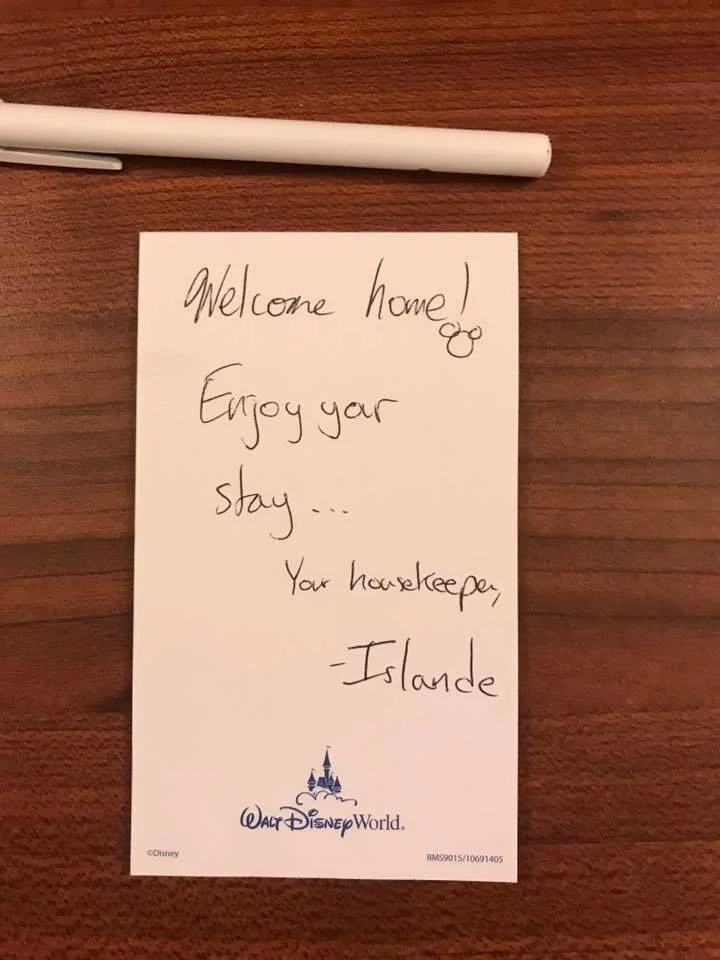 Welcome home!
Enjoy your
stay ...
Your housekeeper,
-Islande
WALT DISNEY World.
©Disney
RMS9015/10691405